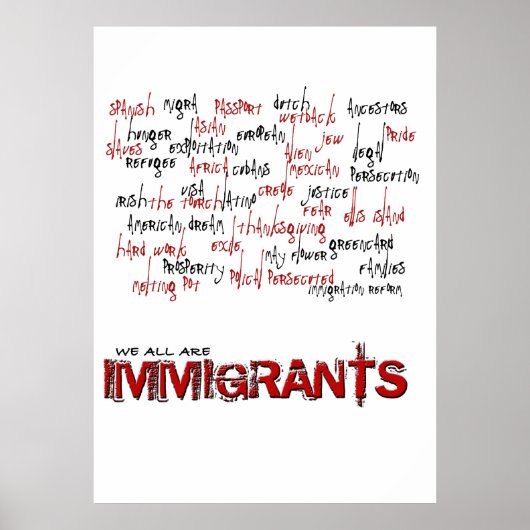 SPANISH MIGRA PASSPORT dutch WETBACK ANCESTORS
SLAVES HUNGER ASIAN EUROPEAN JEW PRIDE
REFUGEE EXPLOITATION ALIEN illegal
AFRICA CUBANS MEXICAN PERSECUTION
IRISH THE TORCH VISA LATINO CREOLE JUSTICE
AMERICAN DREAM THANKSGIVING FEAR ELLIS ISLAND
HARD WORK EXCILE MAY FLOWER GREENCARD
PROSPERITY POLICAL PERSECUTED FAMILIES
MELTING POT IMMIGRATION REFORM
WE ALL ARE
IMMIGRANTS